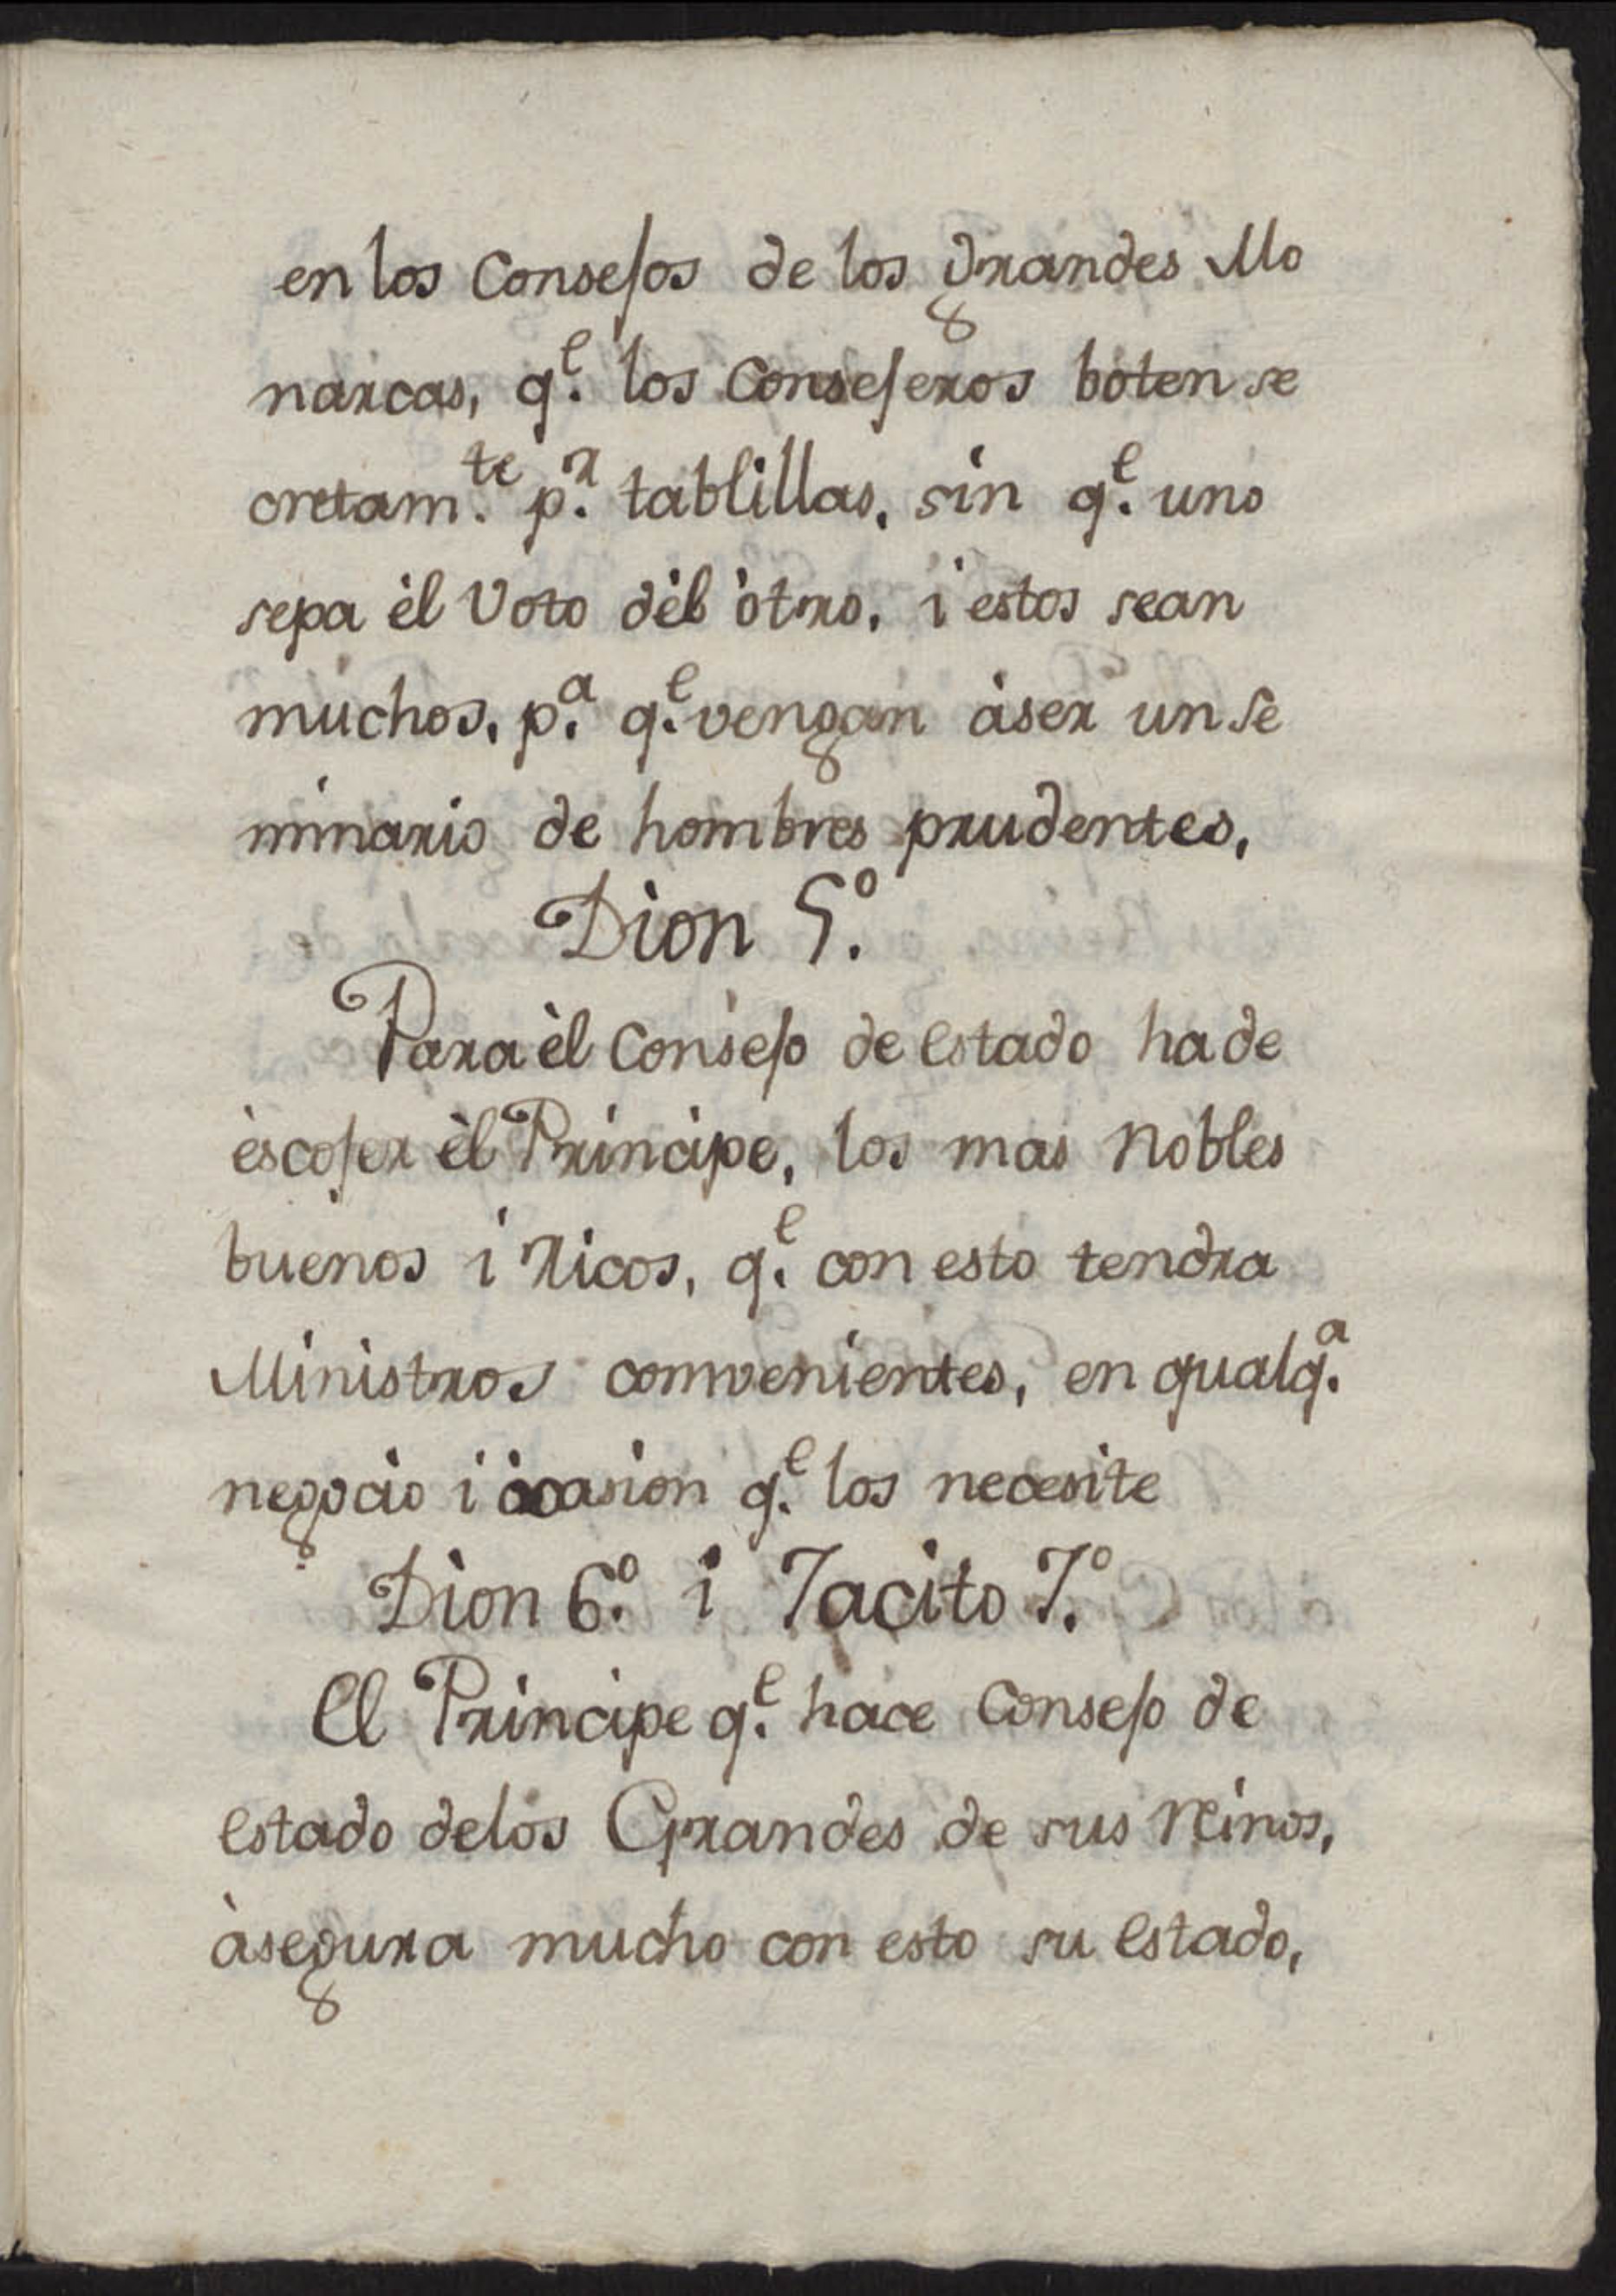 en los Consejos de los grandes Mo
narcas, q.e los Consejeros boten se
cretam.te p.r tablillas, sin q.e uno
sepa èl Voto dèl òtro, i estos sean
muchos, p.a q.e vengan àser un Se
minario de hombres prudentes,
Dion 5.o
Para èl Consejo de estado ha de
èscojer èl Principe, los mas Nobles
buenos i Ricos, q.e con esto tendra
Ministros convenientes, en qualq.a
negocio i òcasion q.e los necesite
Dion 6.o i Tacito 7.o
El Principe q.e hace Consejo de
estado delos Grandes de sus Reinos,
àsegura mucho con esto su estado,